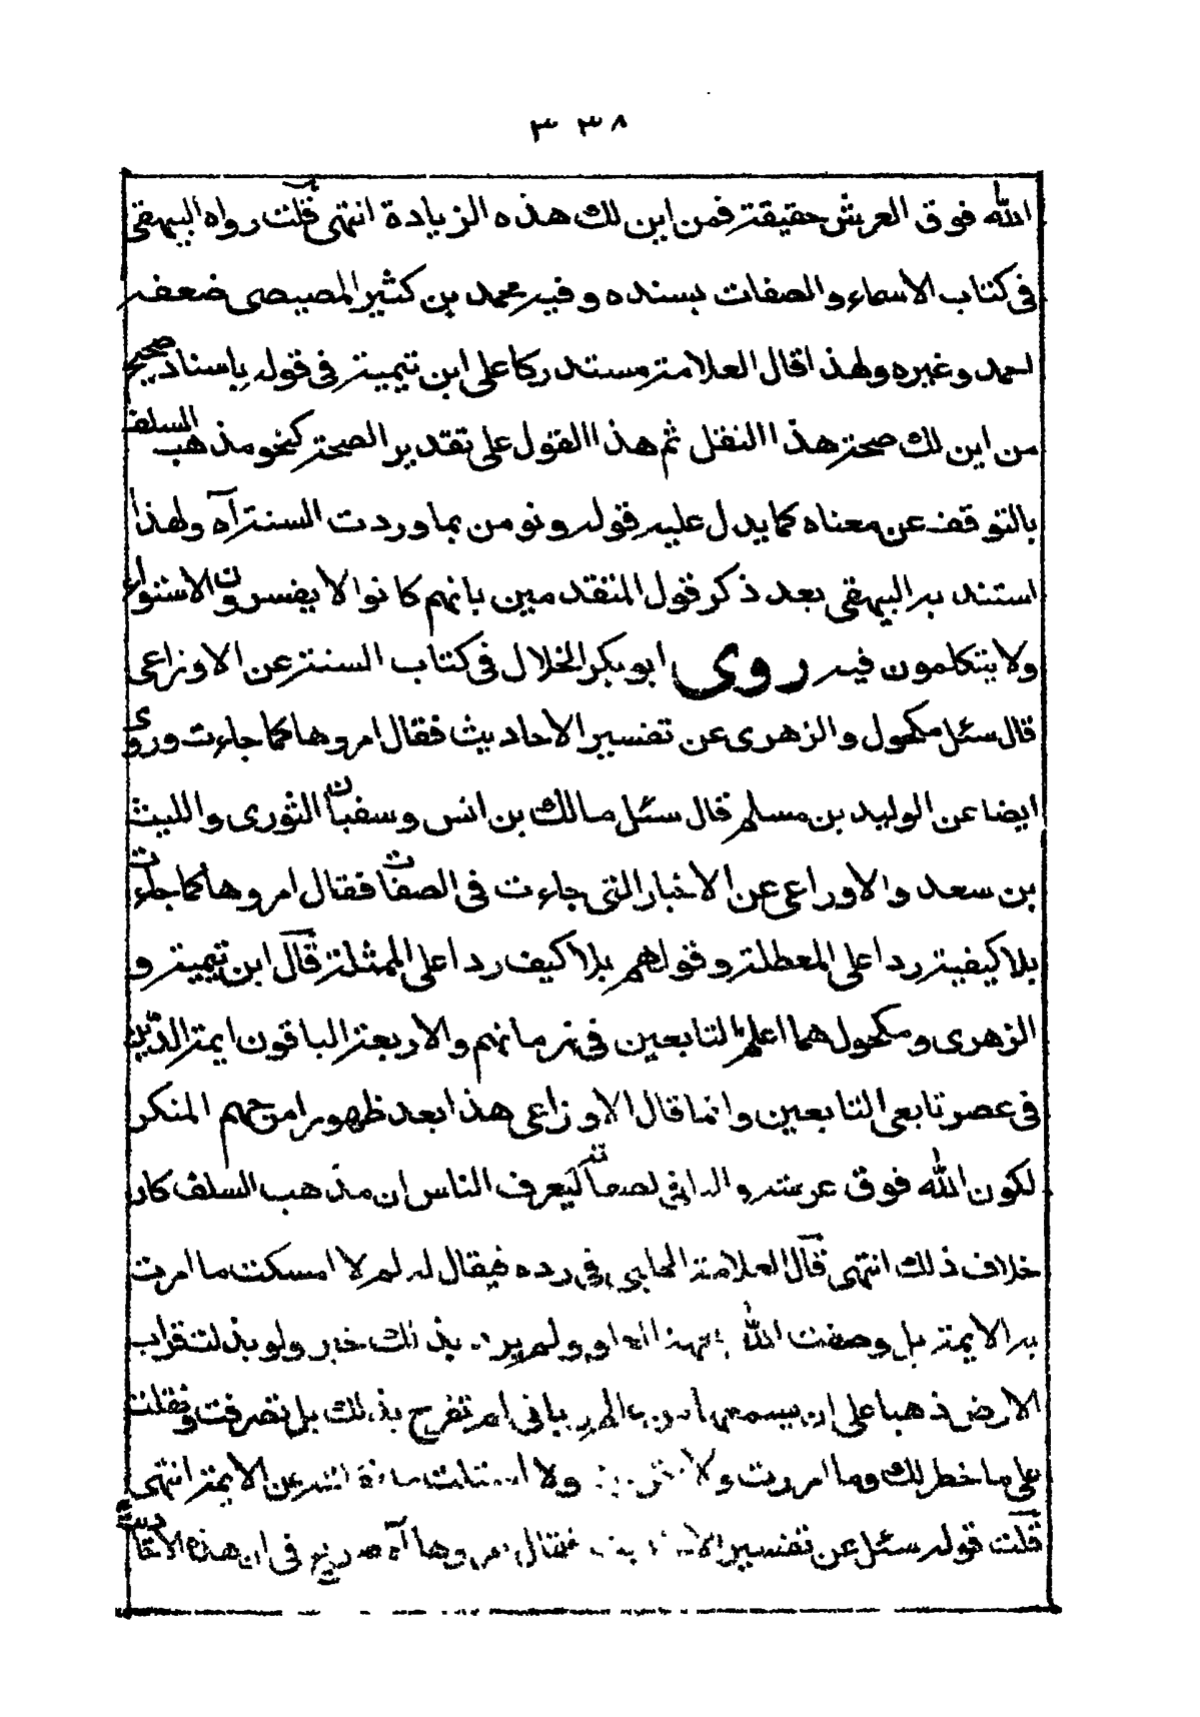 ٣٣٨
الله فوق العرش حقيقة فمن اين لك هذه الزيادة انتهى قلت رواه البيهقى
فى كتاب الاسماء والصفات بسنده وفيه محمد بن كثير المصيصى ضعفه
احمد وغيره ولهذا قال العلامة مستدركا على ابن تيمية فى قوله باسناد صحيح
من اين لك صحة هذا النقل ثم هذا القول على تقدير الصحة كنحو مذهب السلف
بالتوقف عن معناه كما يدل عليه قوله ونومن بما وردت السنة آه ولهذا
استند به البيهقى بعد ذكر قول المتقدمين بانهم كانوا لا يفسرون الاستواء
ولا يتكلمون فيه روى ابو بكر الخلال فى كتاب السنة عن الاوزاعى
قال سئل مكحول والزهرى عن تفسير الاحاديث فقال امروها كما جاءت وروى
ايضا عن الوليد بن مسلم قال سئل مالك بن انس وسفيان الثورى والليث
بن سعد والاوراعى عن الاخبار التى جاءت فى الصفات فقال امروها كما جاءت
بلا كيفية ردا على المعطلة وقولهم بلا كيف ردا على الممثلة قال ابن تيمية و
الزهرى ومكحول هما اعلم التابعين فى زمانهم والاربعة الباقون ايمة الدين
فى عصر تابعى التابعين وانما قال الاوزاعى هذا بعد ظهور امر جهم المنكر
لكون الله فوق عرشه و لصفاته ليعرف الناس ان مذهب السلف كان
خلاف ذلك انتهى قال العلامة الحلبى فى رده فيقال له لم لا امسكت ما امرت
به الايمة بل وصفت الله بهذا ولم يرد بذلك خبر ولو بذلت قراب
الارض ذهبا على ان تسمعه من لم تفرح بذلك بل تصرفت ونقلت
على ما خطر لك وما امررت ولا ولا امتثلت ما نقلته عن الايمة انتهى
قلت قوله سئل عن تفسير فقال امروها آه صريح فى ان هذه